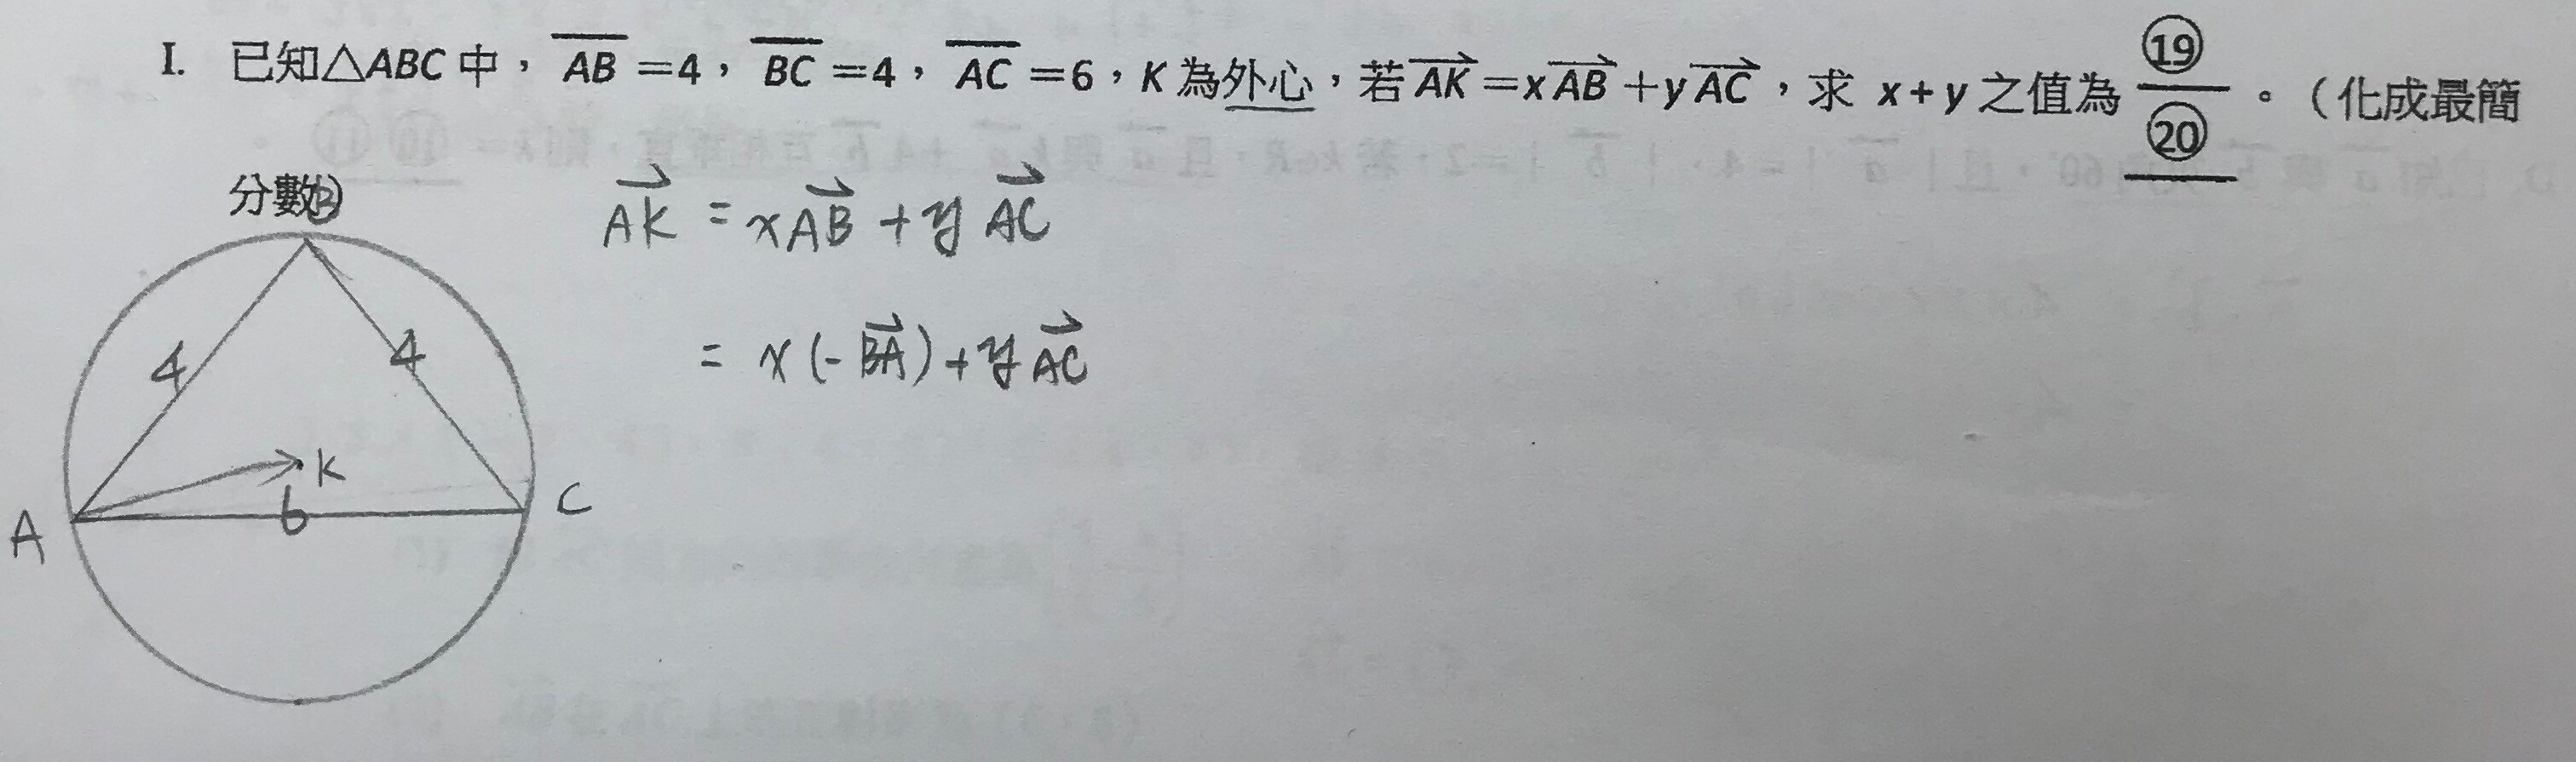 I. 已知△ABC 中，AB=4，BC=4，AC=6，K 為外心，若AK=xAB+yAC，求 x+y 之值為 ⑲/⑳。（化成最簡
分數)
B
AK = xAB + yAC
= x(-BA) + yAC
4
4
K
6
A
C